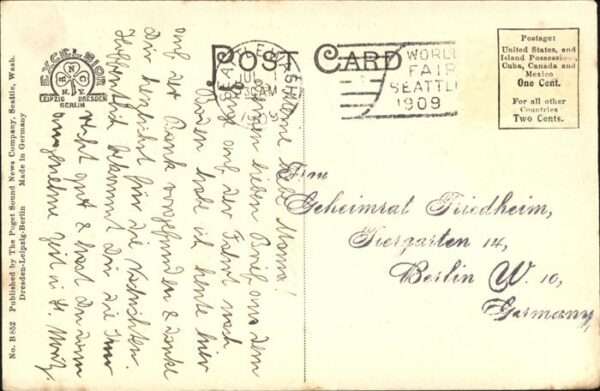 POST CARD
SEATTLE, WASH.
JUL
30 AM
1909
WORLD'S
FAIR
SEATTLE
1909
Postage:
United States, and
Island Possessions,
Cuba, Canada and
Mexico
One Cent.
For all other
Countries
Two Cents.
EXCELSIOR
N.Y.
LEIPZIG DRESDEN
BERLIN
No. B 852 Published by The Puget Sound News Company, Seattle, Wash.
Dresden-Leipzig-Berlin Made in Germany
Meine liebe Mama!
Deinen lieben Brief aus dem
auf der Fahrt nach
habe ich heute hier
auf der Bank vorgefunden & danke
Dir herzlichst für die Nachrichten.
Hoffentlich bekommt Dir die Kur
recht gut & hast Du eine
angenehme Zeit in St. Moritz.
Frau
Geheimrat Friedheim,
Tiergarten 14,
Berlin W. 10,
Germany